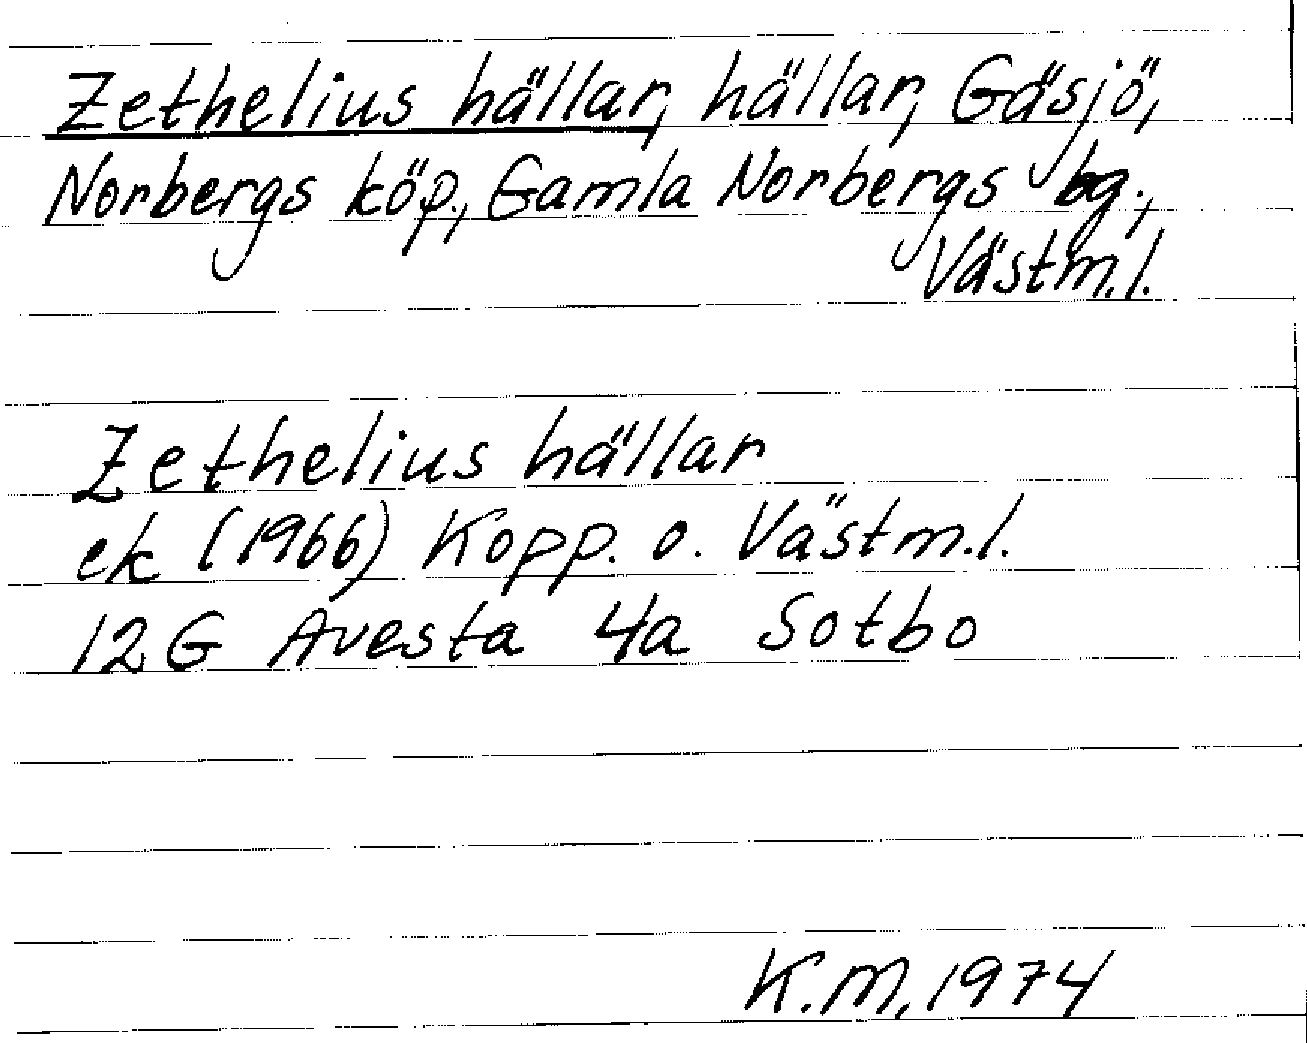 Zethelius hällar, hällar, Gäsjö,
Norbergs köp., Gamla Norbergs bg.,
Västm.l.
Zethelius hällar
ek (1966) Kopp. o. Västm.l.
12G Avesta 4a Sotbo
K.M. 1974